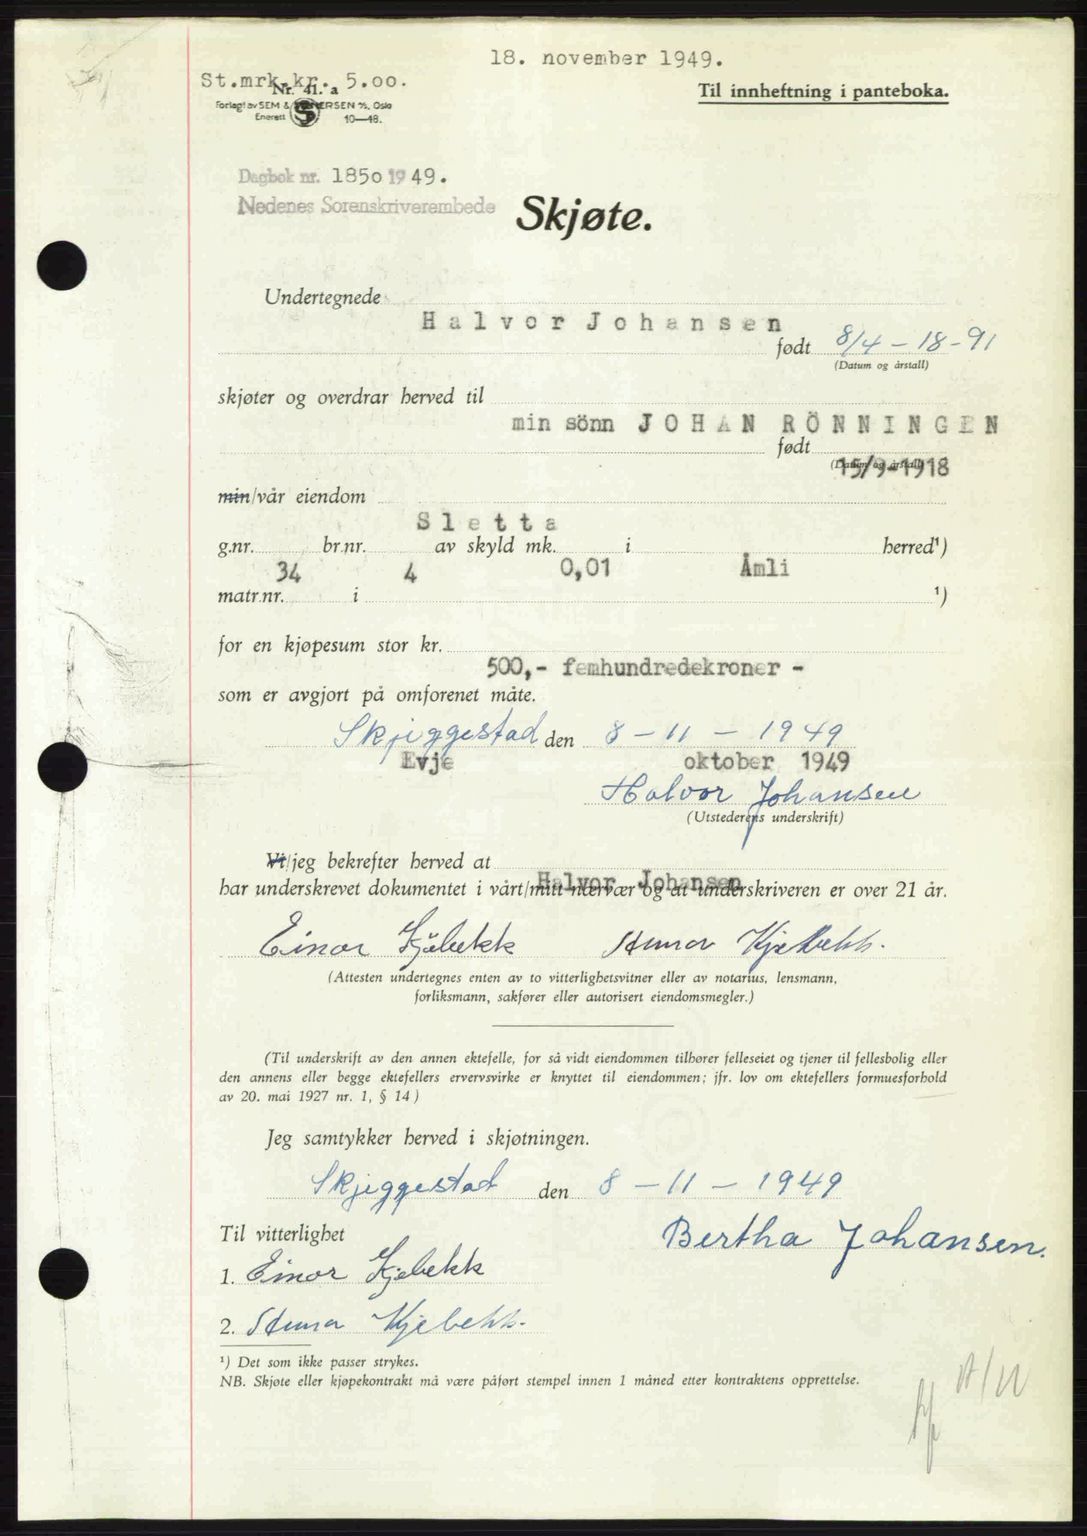 18. november 1949.
St.mrk.kr. 5.00.
Nr. 41. a
Til innheftning i panteboka.
Forlagt av SEM & STENERSEN A/S, Oslo
Enerett 10—48.
Dagbok nr. 1850 1949.
Nedenes Sorenskriverembede
Skjøte.
Undertegnede
Halvor Johansen
født 8/4 - 18-91
(Datum og årstall)
skjøter og overdrar herved til
min sönn JOHAN RÖNNINGEN
født
(Datum og årstall)
15/9-1918
min/vår eiendom
Sletta
g.nr. br.nr. av skyld mk. i herred¹)
34 4 0,01 Åmli
matr.nr. i ¹)
for en kjøpesum stor kr.
500,- femhundredekroner -
som er avgjort på omforenet måte.
Skjeggestad den 8 - 11 - 1949
Evje oktober 1949
Halvor Johansen
(Utstederens underskrift)
Vi/jeg bekrefter herved at
Halvor Johansen
har underskrevet dokumentet i vårt/mitt nærvær og at underskriveren er over 21 år.
Einar Kjebekk Kjebekk.
(Attesten undertegnes enten av to vitterlighetsvitner eller av notarius, lensmann,
forliksmann, sakfører eller autorisert eiendomsmegler.)
(Til underskrift av den annen ektefelle, for så vidt eiendommen tilhører felleseiet og tjener til fellesbolig eller
den annens eller begge ektefellers ervervsvirke er knyttet til eiendommen; jfr. lov om ektefellers formuesforhold
av 20. mai 1927 nr. 1, § 14)
Jeg samtykker herved i skjøtningen.
Skjeggestad den 8 - 11 - 1949
Til vitterlighet
Bertha Johansen.
1. Einar Kjebekk
2. Kjebekk.
¹) Det som ikke passer strykes.
NB. Skjøte eller kjøpekontrakt må være påført stempel innen 1 måned etter kontraktens opprettelse.